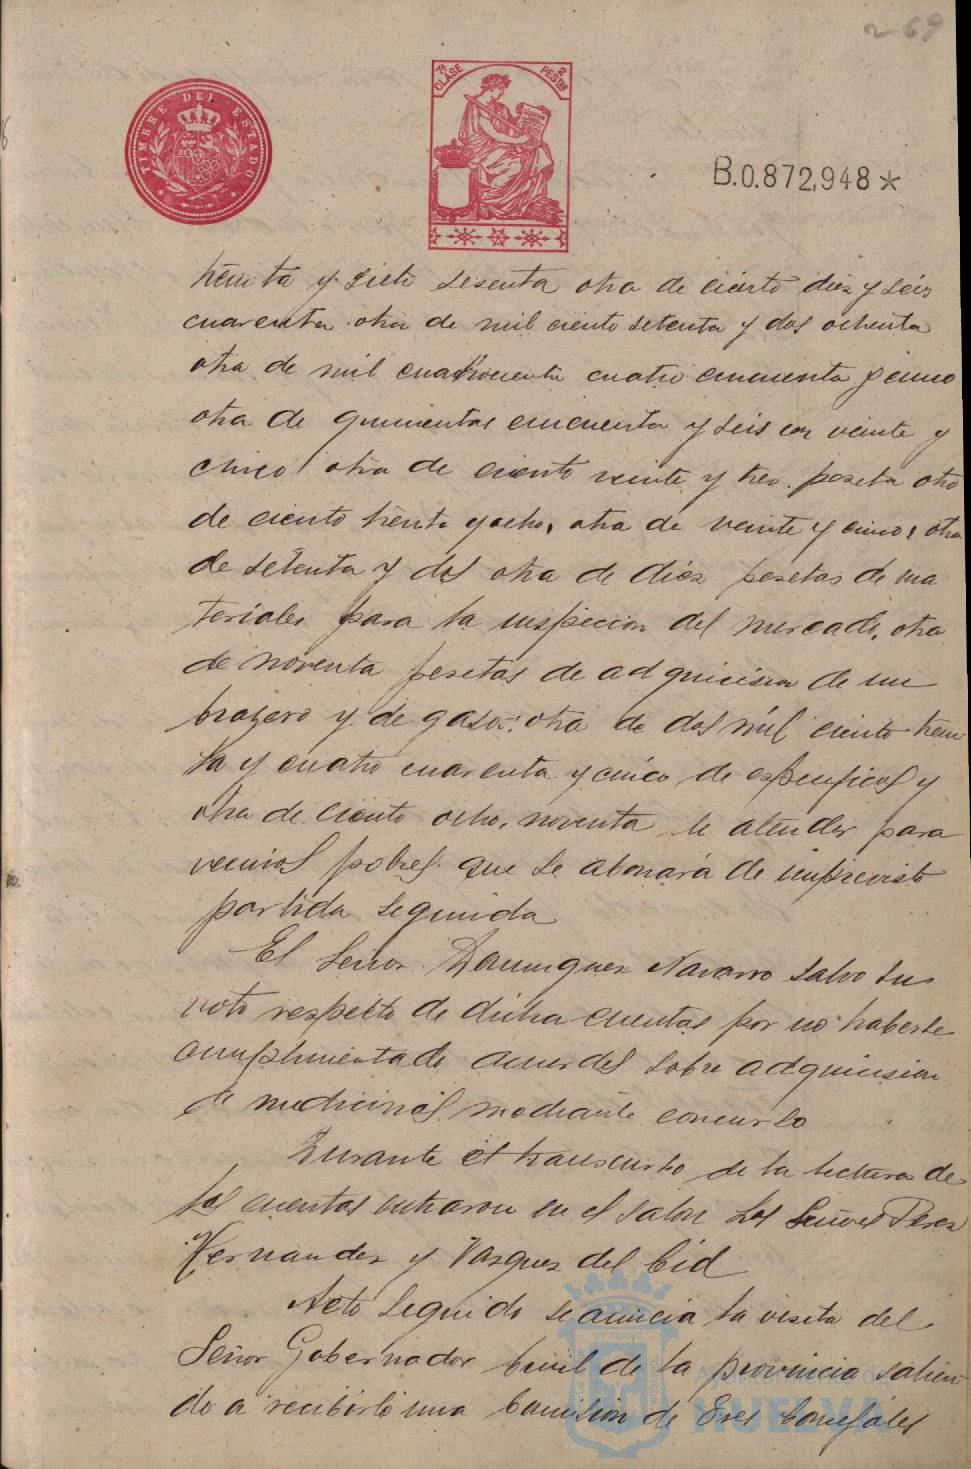 269
TIMBRE DEL ESTADO
7ª CLASE
2 PESTAS
B.0.872,948*
treinta y siete sesenta otra de ciento diez y seis
cuarenta otra de mil ciento setenta y dos ochenta
otra de mil cuatrocientos cuatro cincuenta y cinco
otra de quinientas cincuenta y seis con veinte y
cinco otra de ciento veinte y tres peseta otro
de ciento treinta y ocho, otra de veinte y cinco, otra
de setenta y dos otra de diez pesetas de ma
teriales para la inspeccion del mercado, otra
de noventa pesetas de adquicision de un
brazero y de gasas: otra de dos mil ciento trein
ta y cuatro cuarenta y cinco de especificos y
otra de ciento ocho, noventa de alender para
vecinos pobres que se abonará de imprevisto
partida segunda
El Señor Dominguez Navarro salvo su
voto respecto de dicha cuentas por no haberse
cumplimentado acuerdos sobre adquicision
de medicinas mediante concurso
Durante el transcurso de la lectura de
las cuentas entraron en el salon los Señores Perez
Hernandez y Vazquez del Cid
Acto seguido se anuncia la visita del
Señor Gobernador Civil de la provincia salien
do a recibirlo una Comision de Sres Concejales
HUELVA